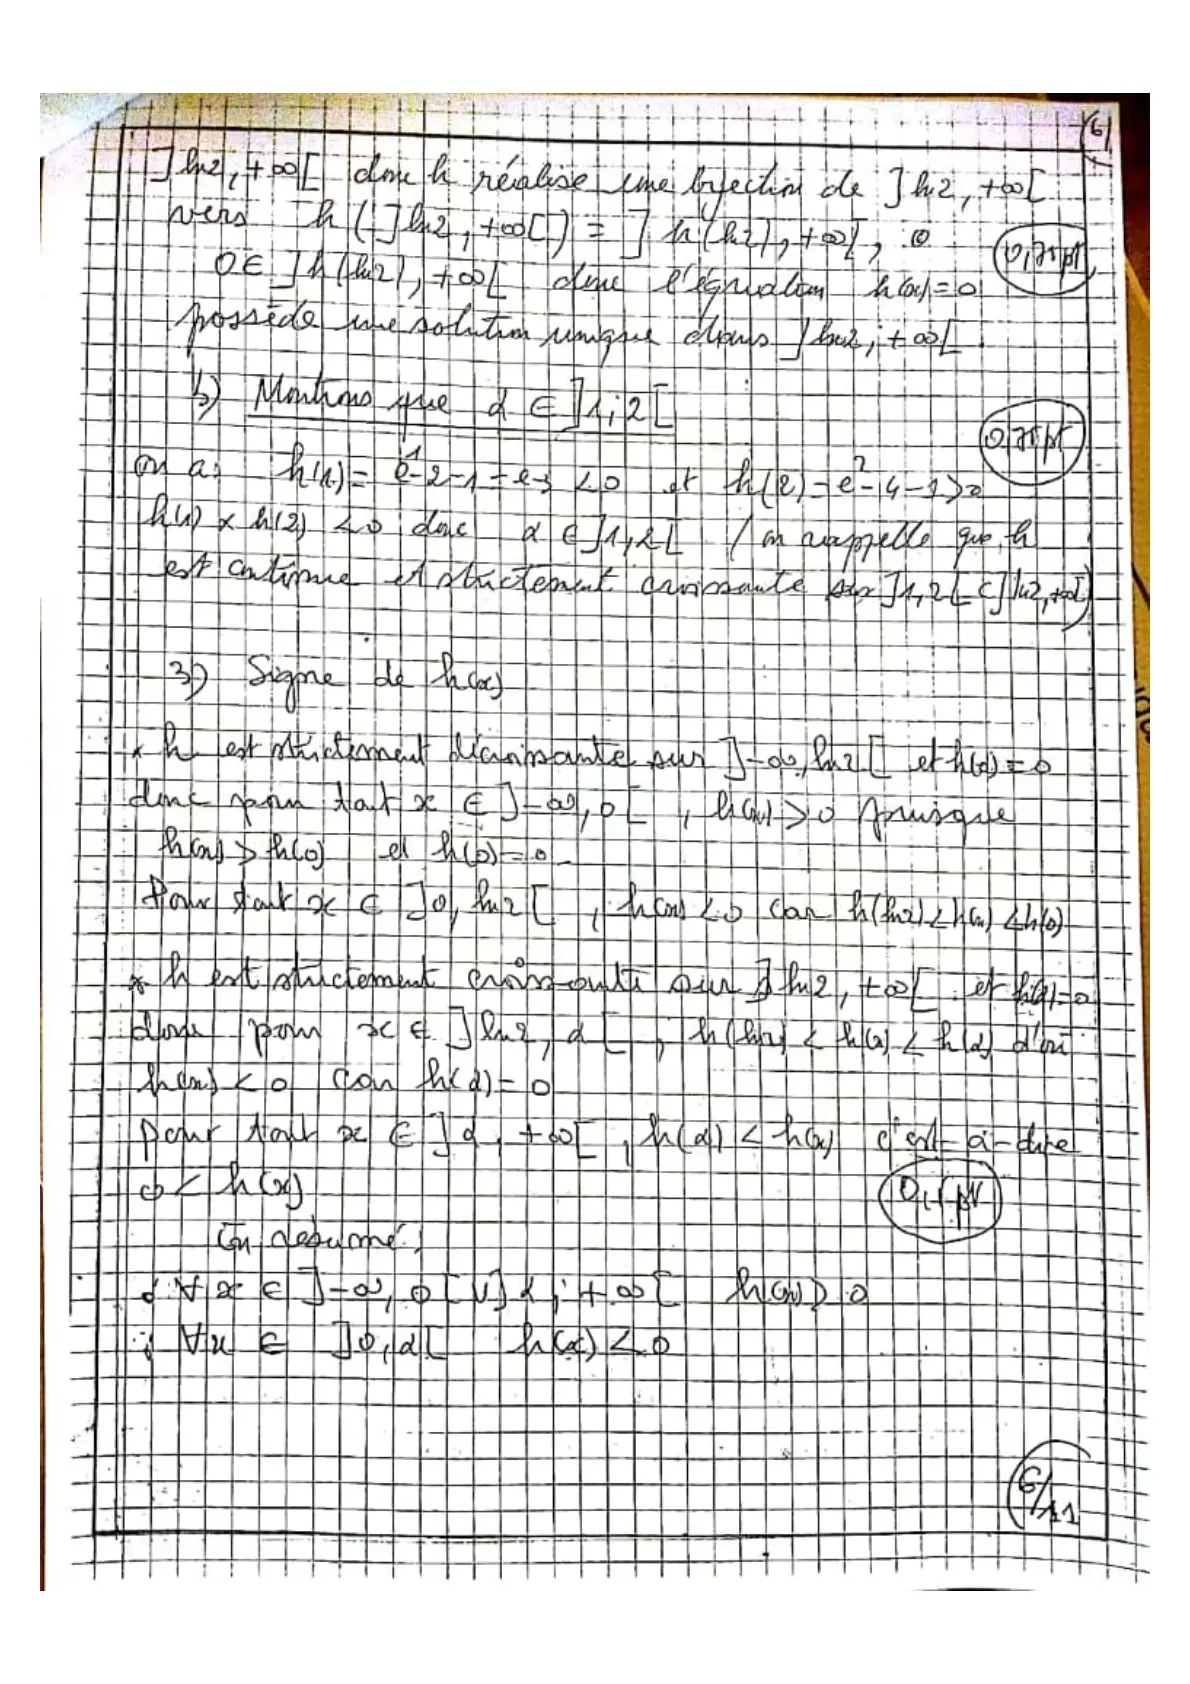 6
]ln2, +∞[ donc h réalise une bijection de ]ln2, +∞[
vers h(]ln2, +∞[) = ]h(ln2), +∞[,
0,75pt
0 ∈ ]h(ln2), +∞[ donc l'équation h(x) = 0
possède une solution unique dans ]ln2, +∞[
b) Montrons que α ∈ ]1; 2[
0,75pt
on a: h(1) = e¹-2-1 = e-3 < 0 et h(2) = e²-4-1 > 0
h(1) × h(2) < 0 donc α ∈ ]1, 2[ (on rappelle que h
est continue et strictement croissante sur ]1, 2[ ⊂ ]ln2, +∞[)
3) Signe de h(x)
* h est strictement décroissante sur ]-∞, ln2[ et h(0) = 0
donc pour tout x ∈ ]-∞, 0[, h(x) > 0 puisque
h(x) > h(0) et h(0) = 0
Pour tout x ∈ ]0, ln2[, h(x) < 0 car h(ln2) < h(x) < h(0)
* h est strictement croissante sur ]ln2, +∞[ et h(α) = 0
donc pour x ∈ ]ln2, α[, h(ln2) < h(x) < h(α) d'où
h(x) < 0 car h(α) = 0
pour tout x ∈ ]α, +∞[, h(α) < h(x) c'est-à-dire
0 < h(x)
0,5pt
En résumé:
∀x ∈ ]-∞, 0[ ∪ ]α; +∞[ h(x) > 0
∀x ∈ ]0, α[ h(x) < 0
6/11